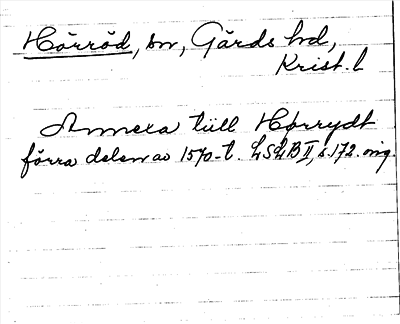 Hörröd, sn, Gärds hd,
Krist. l
Annexa tüll Hørrydt
förra delen av 1570-t. LSLB II, s. 172. orig.